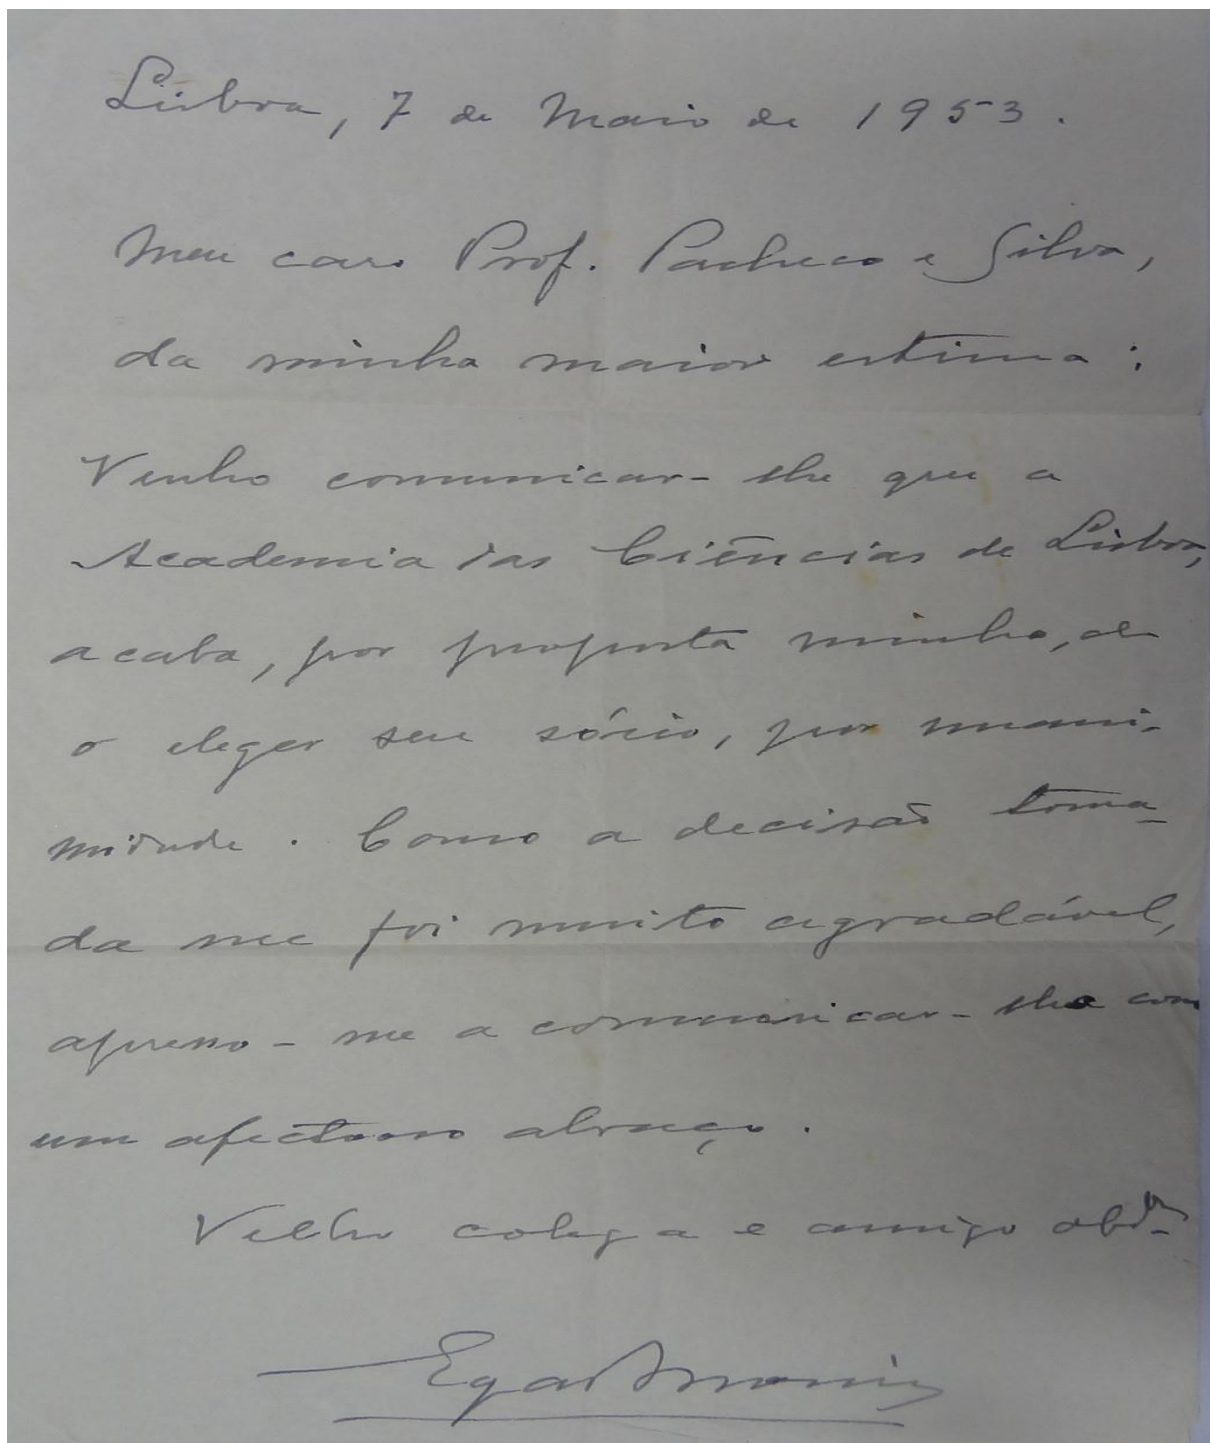 Lisboa, 7 de Maio de 1953.
Meu caro Prof. Pacheco e Silva,
da minha maior estima:
Venho comunicar-lhe que a
Academia das Ciências de Lisboa,
acaba, por proposta minha, de
o eleger seu sócio, por unani-
midade. Como a decisão toma-
da me foi muito agradável,
apresso-me a comunicar-lha com
um afectuoso abraço.
Velho colega e amigo obdo
Egas Moniz